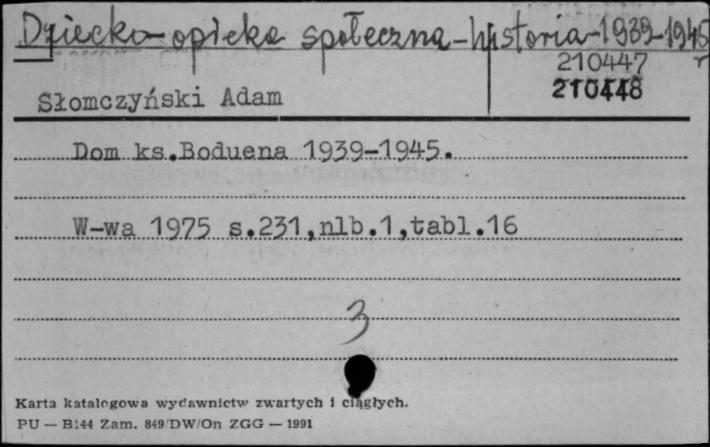 Dziecko-opieka społeczna-historia-1939-1945 r
210447
Słomczyński Adam 210448
Dom ks.Boduena 1939-1945.
W-wa 1975 s.231,nlb.1,tabl.16
3
Karta katalogowa wydawnictw zwartych i ciągłych.
PU — B144 Zam. 849/DW/On ZGG — 1991